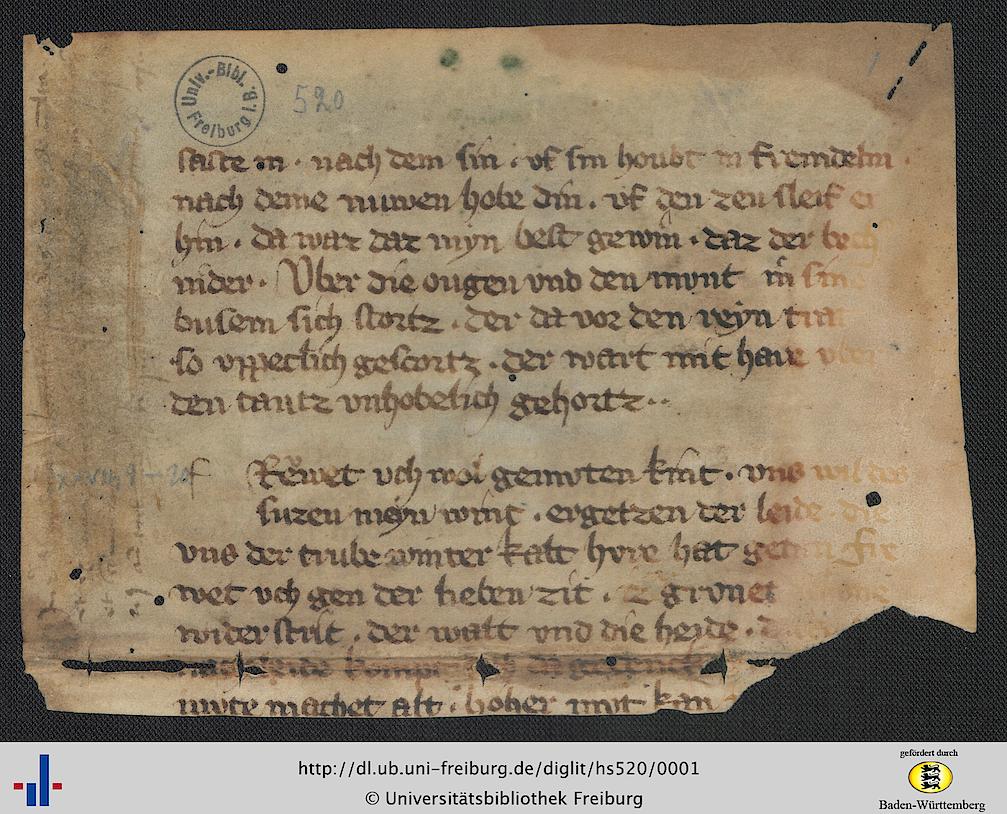 Univ.-Bibl. Freiburg i. B.
520
saste in · nach dem sin · vf sin houbt in
nach deme nuwen hobe din · vf den zen sleif er
hin · da waz daz myn best gewin · daz der
nider · Vber die ougen vnd den munt sin
busem sich stortz · der da vor den reyn trat
so vppeclich gescortz · der wart mit hare vber
den tantz vnhobelich gehortz ··
f Rewet vch wol gemvten kint · vns wil des
suzen meyn wint · ergetzen der leide die
vns der trube winter kalt hvre hat getan
wet vch gen der lieben zit · gronet
wider strit · der walt vnd die heyde ·
mvte machet alt · hoher mvt kan
http://dl.ub.uni-freiburg.de/diglit/hs520/0001
© Universitätsbibliothek Freiburg
gefördert durch
Baden-Württemberg